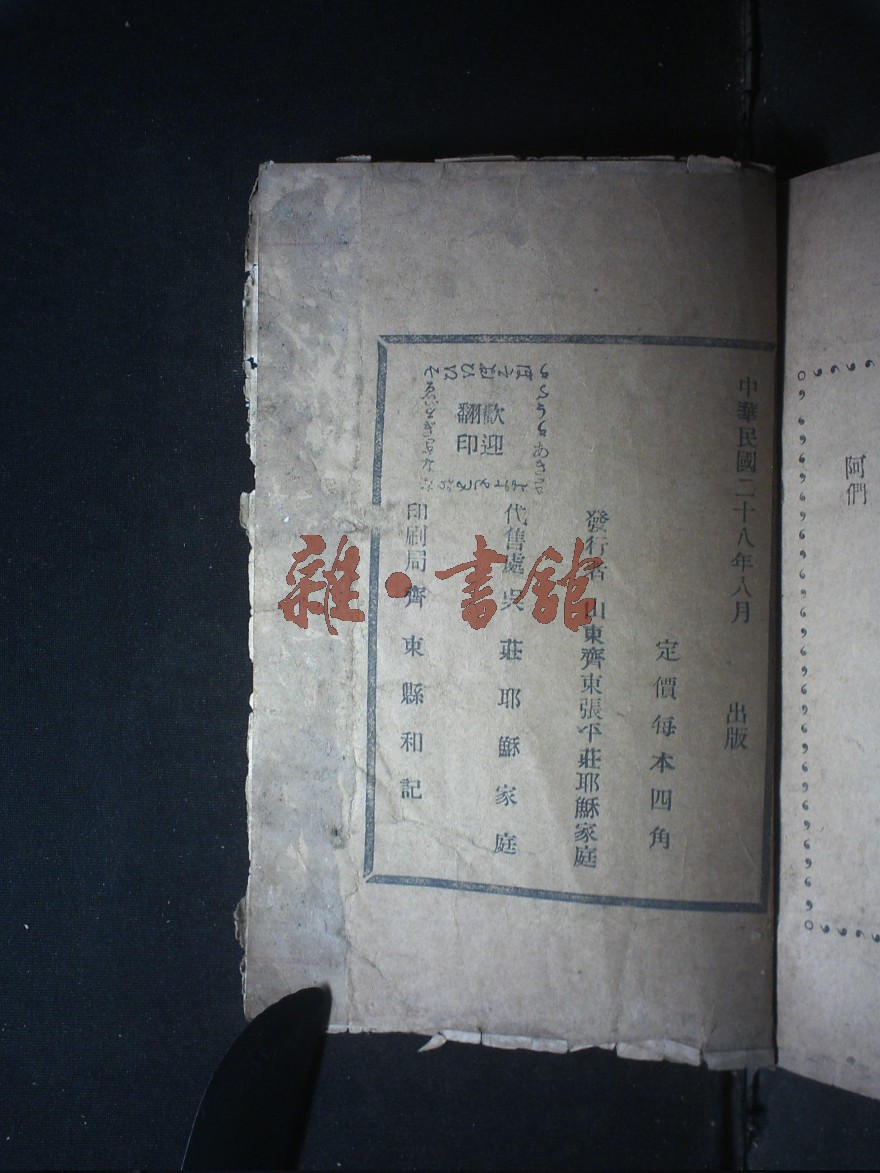 阿們
中華民國二十八年八月 出版
定價每本四角
發行者 山東齊東張平莊耶穌家庭
代售處 吳莊耶穌家庭
歡迎
翻印
印刷局 齊東縣和記
雜·書館